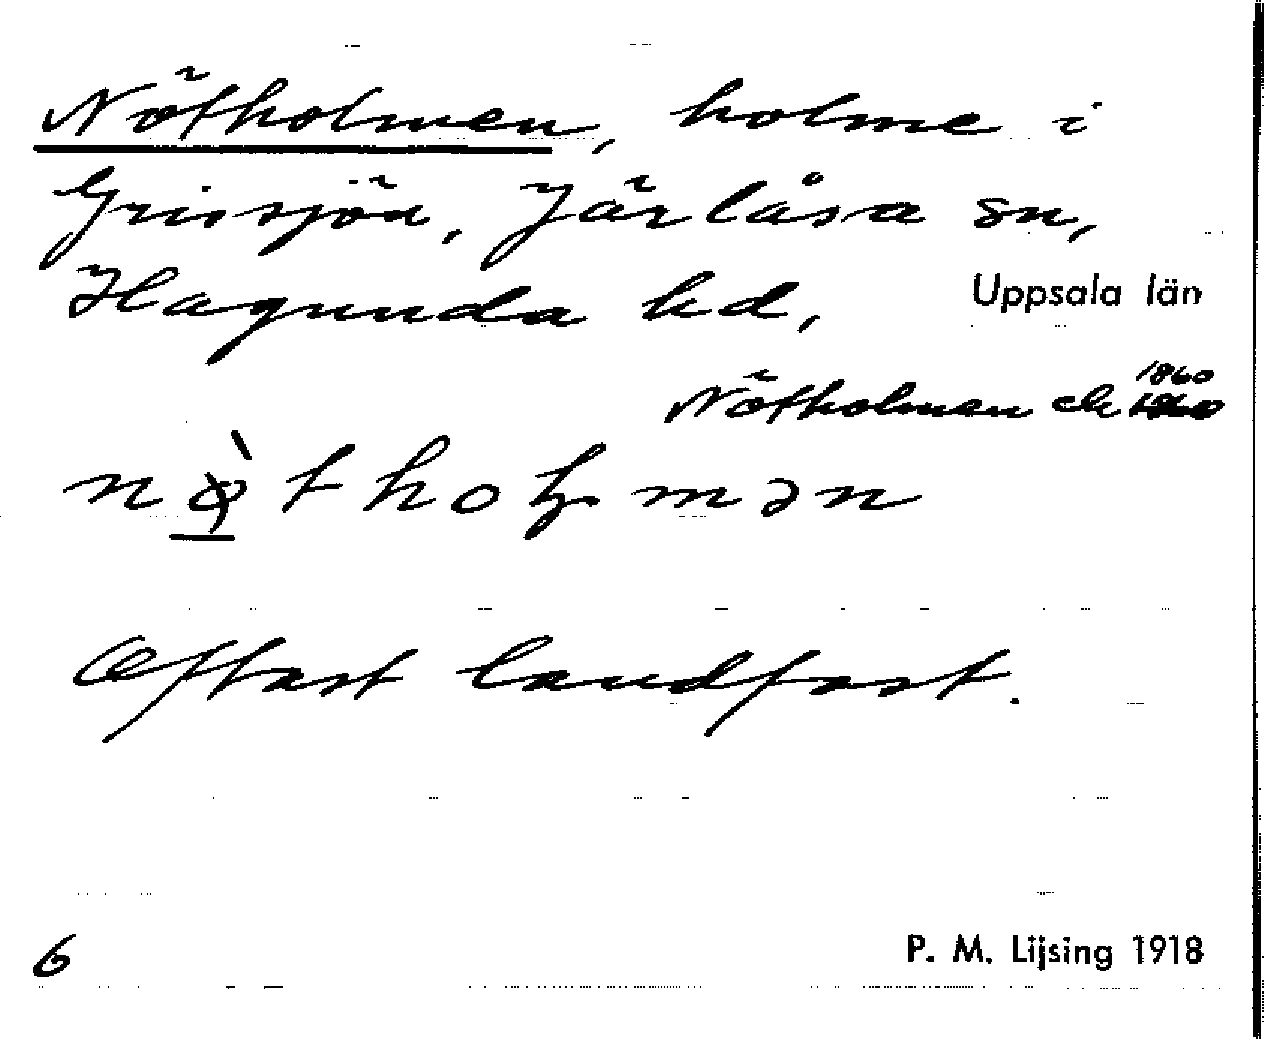 Nötholmen, holme i
Grissjön, Järlåsa sn,
Hagunda hd, Uppsala län
Nötholmen ek 1860
nø̀tholmən
Oftast landfast.
6 P. M. Lijsing 1918